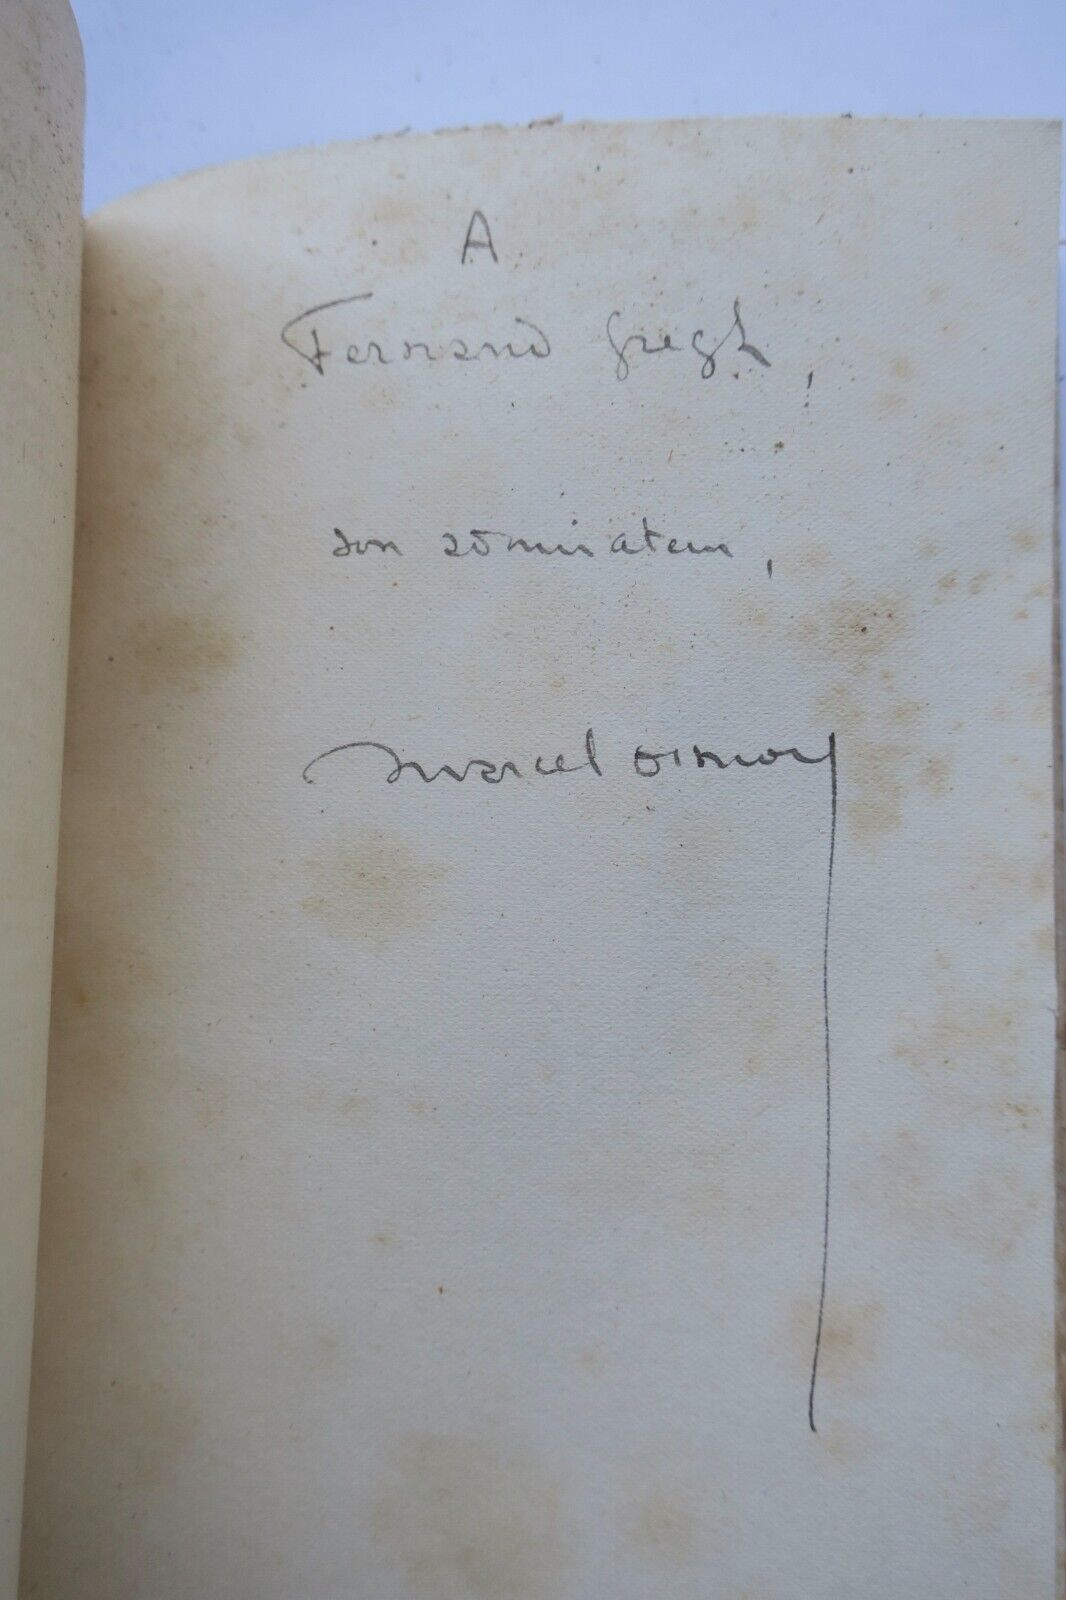 A
Fernand Gregh,
son admirateur,
Marcel Ormoy